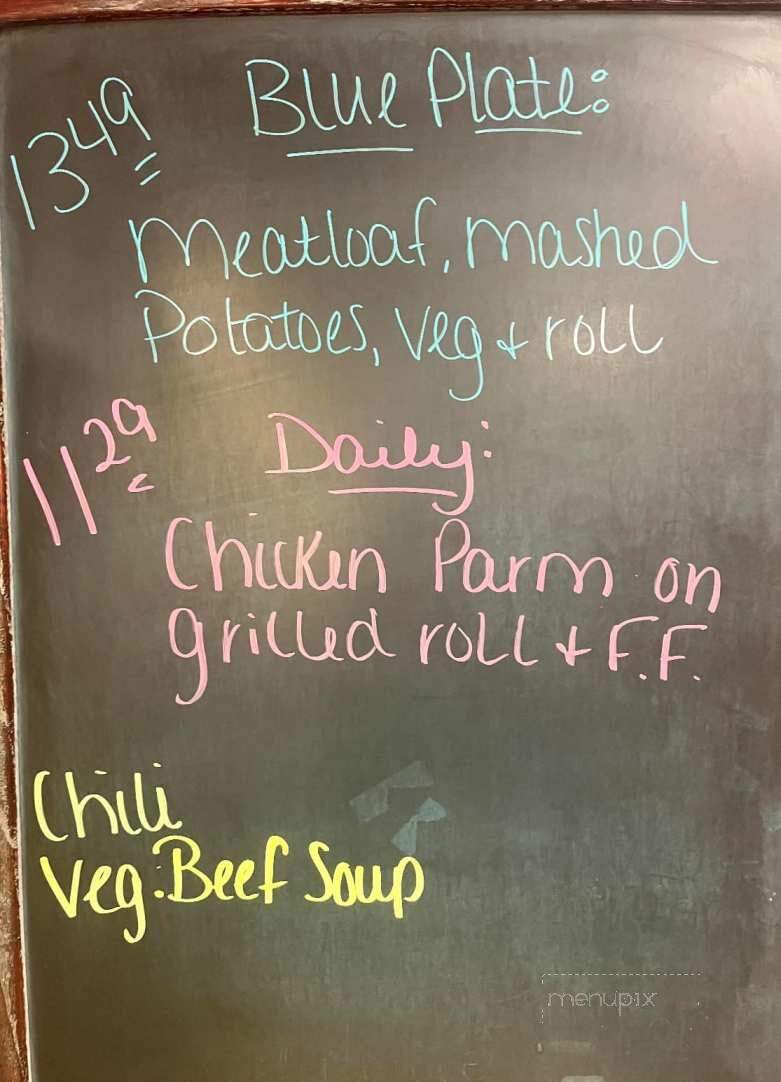 13 49 Blue Plate:
Meatloaf, mashed
Potatoes, Veg + roll
11 29 Daily:
Chicken Parm on
grilled roll + F.F.
Chili
Veg. Beef Soup
menupix